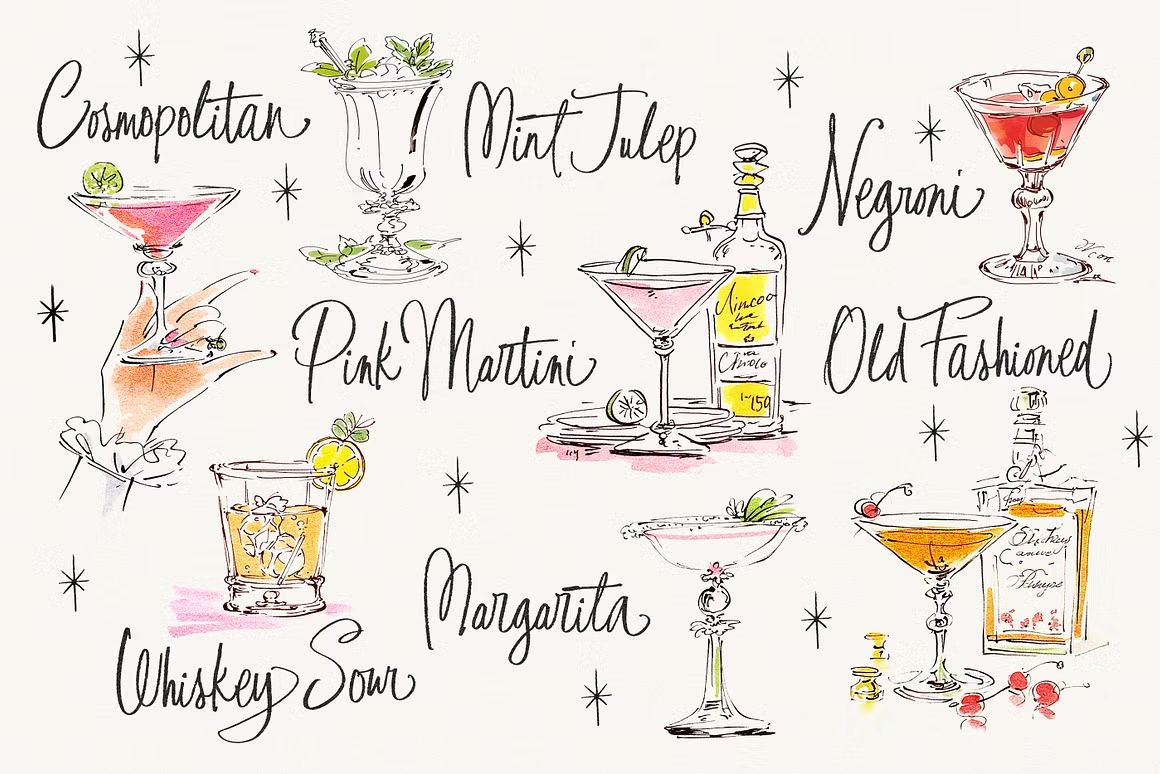 Cosmopolitan
Mint Julep
Negroni
Pink Martini
Old Fashioned
Margarita
Whiskey Sour